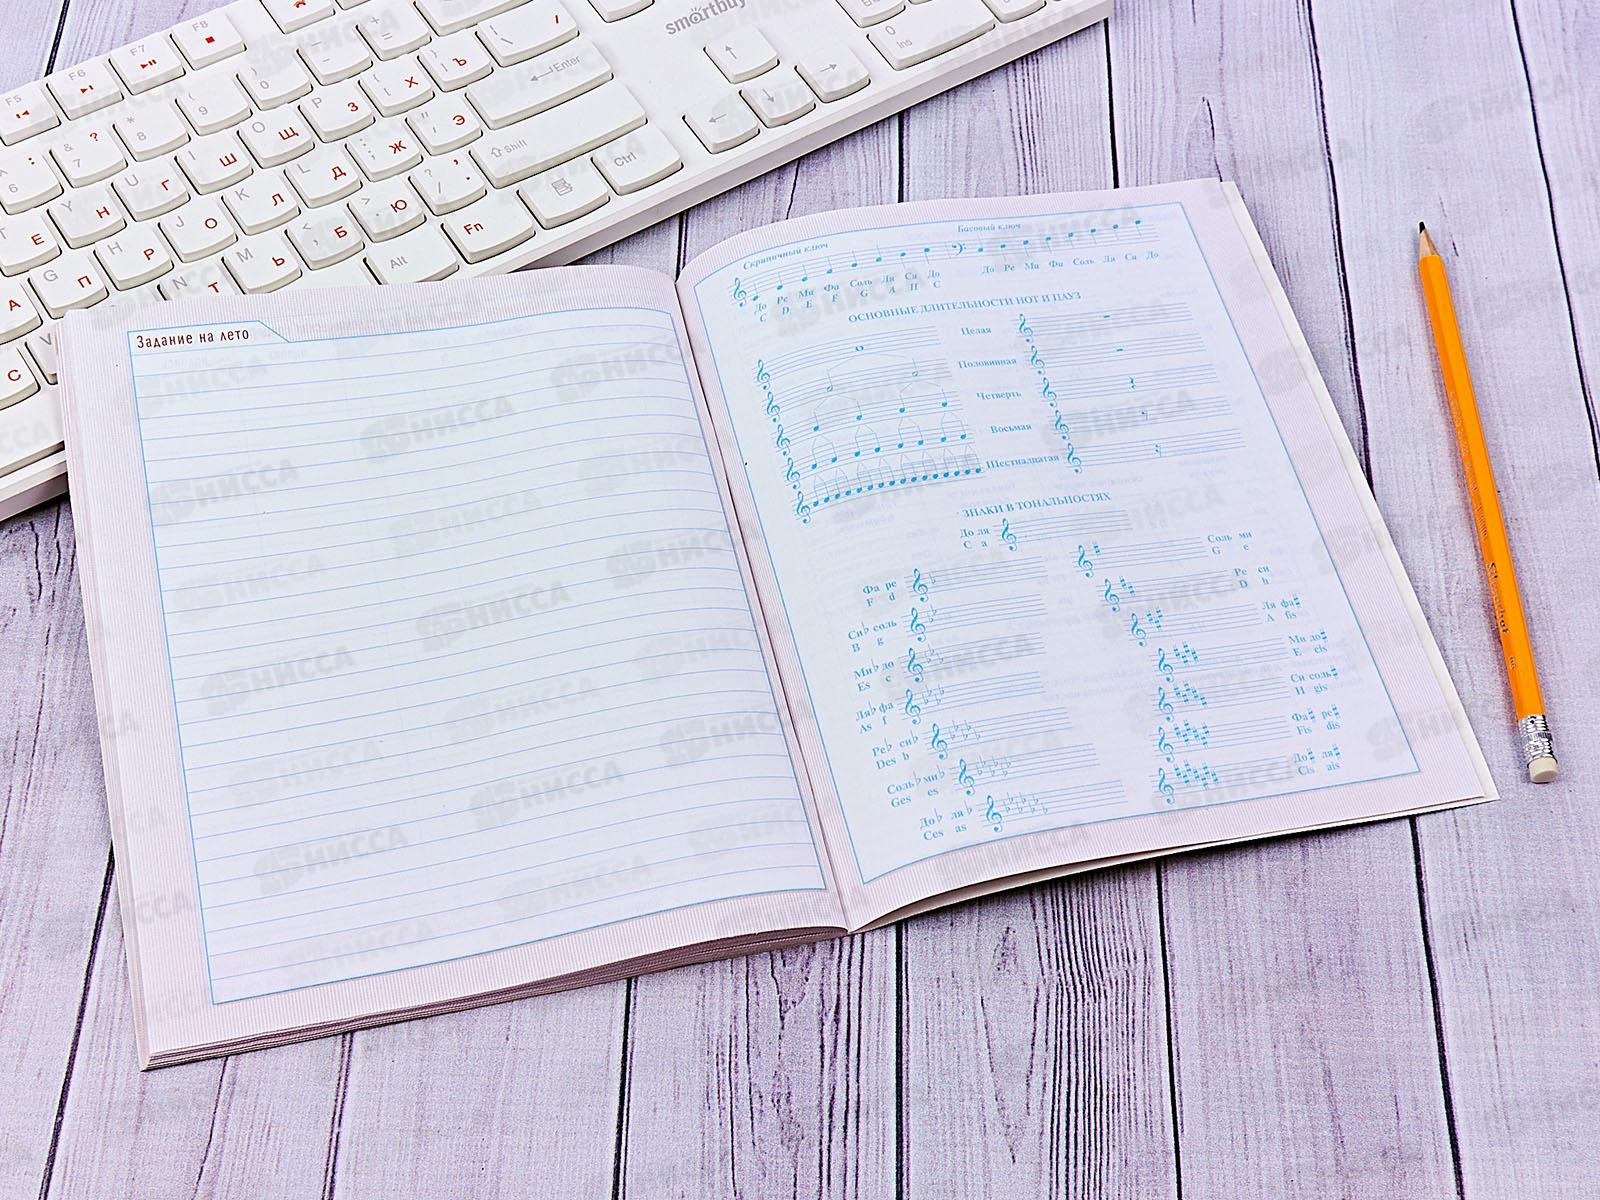 smartbuy
F5
F6
F7
F8
Enter
Shift
Ctrl
Alt
Fn
Ins
НИССА
Задание на лето
Скрипичный ключ
Басовый ключ
До Ре Ми Фа Соль Ля Си До
C D E F G A H C
До Ре Ми Фа Соль Ля Си До
ОСНОВНЫЕ ДЛИТЕЛЬНОСТИ НОТ И ПАУЗ
Целая
Половинная
Четверть
Восьмая
Шестнадцатая
ЗНАКИ В ТОНАЛЬНОСТЯХ
До ля
C a
Соль ми
G e
Фа ре
F d
Ре си
D h
Си♭ соль
B g
Ля фа♯
A fis
Ми♭ до
Es c
Ми до♯
E cis
Ля♭ фа
As f
Си соль♯
H gis
Ре♭ си♭
Des b
Фа♯ ре♯
Fis dis
Соль♭ ми♭
Ges es
До♯ ля♯
Cis ais
До♭ ля♭
Ces as